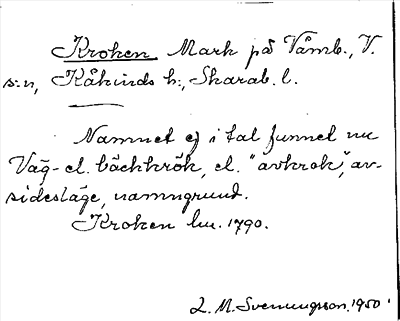 Kroken Mark på Våmb., V.
s:n, Kåkinds h:, Skarab. l.
Namnet ej i tal funnet nu
Väg- el. bäckkrök, el. "avkrok", av-
sidesläge, namngrund.
Kroken hu. 1790.
L. M. Svenungsson, 1950.